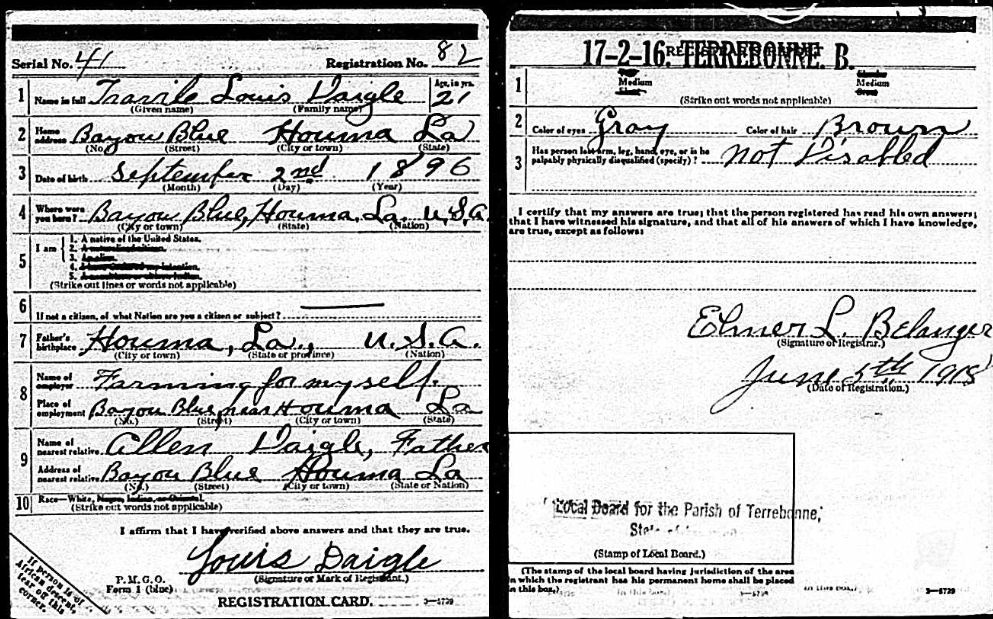 Serial No. 41 Registration No. 82
1 Name in full Louis Daigle Age, in yrs. 21
(Given name) (Family name)
2 Home address Bayou Blue Houma La
(No.) (Street) (City or town) (State)
3 Date of birth September 2nd 1896
(Month) (Day) (Year)
4 Where were you born? Bayou Blue, Houma, La. U.S.A.
(City or town) (State) (Nation)
5 I am
1. A native of the United States.
2. A naturalized citizen.
3. An alien.
4. I have declared my intention.
5.
(Strike out lines or words not applicable)
6 If not a citizen, of what Nation are you a citizen or subject?
7 Father's birthplace Houma, La., U.S.A.
(City or town) (State or province) (Nation)
8 Name of employer Farming for myself.
Place of employment Bayou Blue, near Houma La
(No.) (Street) (City or town) (State)
9 Name of nearest relative Allen Daigle, Father
Address of nearest relative Bayou Blue Houma La
(No.) (Street) (City or town) (State or Nation)
10 Race—White, Negro, Indian, or Oriental.
(Strike out words not applicable)
I affirm that I have verified above answers and that they are true.
Louis Daigle
(Signature or Mark of Registrant.)
P. M. G. O.
Form 1 (blue)
REGISTRATION CARD. 3—5729
If person is of African descent, tear off this corner.
17-2-16. TERREBONNE. B.
1 Medium Medium
(Strike out words not applicable)
2 Color of eyes Gray Color of hair Brown
3 Has person lost arm, leg, hand, eye, or is he palpably physically disqualified (specify)? Not Disabled
I certify that my answers are true; that the person registered has read his own answers;
that I have witnessed his signature, and that all of his answers of which I have knowledge,
are true, except as follows:
Elmer L. Belanger
(Signature of Registrar.)
June 5th 1918
(Date of Registration.)
Local Board for the Parish of Terrebonne,
(Stamp of Local Board.)
(The stamp of the local board having jurisdiction of the area
in which the registrant has his permanent home shall be placed
in this box.)
3—5729